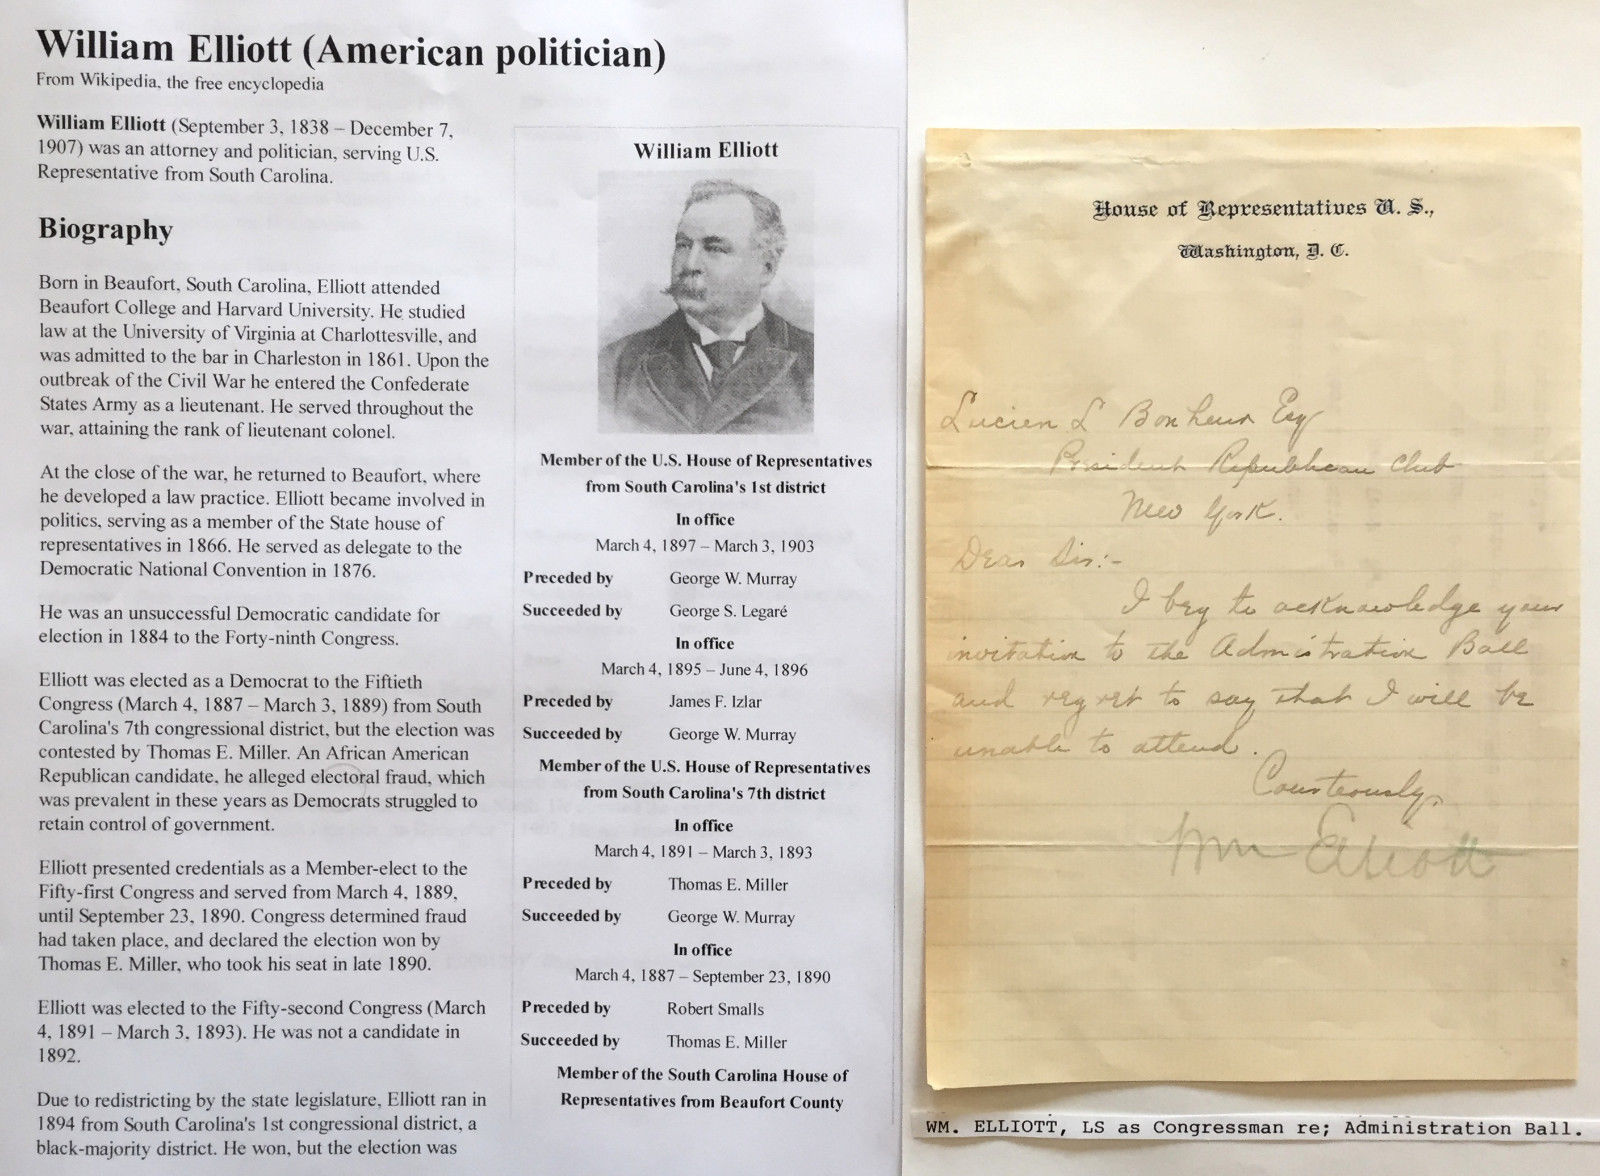 William Elliott (American politician)
From Wikipedia, the free encyclopedia
William Elliott (September 3, 1838 – December 7,
1907) was an attorney and politician, serving U.S.
Representative from South Carolina.
Biography
Born in Beaufort, South Carolina, Elliott attended
Beaufort College and Harvard University. He studied
law at the University of Virginia at Charlottesville, and
was admitted to the bar in Charleston in 1861. Upon the
outbreak of the Civil War he entered the Confederate
States Army as a lieutenant. He served throughout the
war, attaining the rank of lieutenant colonel.
At the close of the war, he returned to Beaufort, where
he developed a law practice. Elliott became involved in
politics, serving as a member of the State house of
representatives in 1866. He served as delegate to the
Democratic National Convention in 1876.
He was an unsuccessful Democratic candidate for
election in 1884 to the Forty-ninth Congress.
Elliott was elected as a Democrat to the Fiftieth
Congress (March 4, 1887 – March 3, 1889) from South
Carolina's 7th congressional district, but the election was
contested by Thomas E. Miller. An African American
Republican candidate, he alleged electoral fraud, which
was prevalent in these years as Democrats struggled to
retain control of government.
Elliott presented credentials as a Member-elect to the
Fifty-first Congress and served from March 4, 1889,
until September 23, 1890. Congress determined fraud
had taken place, and declared the election won by
Thomas E. Miller, who took his seat in late 1890.
Elliott was elected to the Fifty-second Congress (March
4, 1891 – March 3, 1893). He was not a candidate in
1892.
Due to redistricting by the state legislature, Elliott ran in
1894 from South Carolina's 1st congressional district, a
black-majority district. He won, but the election was
William Elliott
Member of the U.S. House of Representatives
from South Carolina's 1st district
In office
March 4, 1897 – March 3, 1903
Preceded by George W. Murray
Succeeded by George S. Legaré
In office
March 4, 1895 – June 4, 1896
Preceded by James F. Izlar
Succeeded by George W. Murray
Member of the U.S. House of Representatives
from South Carolina's 7th district
In office
March 4, 1891 – March 3, 1893
Preceded by Thomas E. Miller
Succeeded by George W. Murray
In office
March 4, 1887 – September 23, 1890
Preceded by Robert Smalls
Succeeded by Thomas E. Miller
Member of the South Carolina House of
Representatives from Beaufort County
House of Representatives U. S.,
Washington, D. C.
Lucien L Bonheur Esq
President Republican Club
New York.
Dear Sir:-
I beg to acknowledge your
invitation to the Admistration Ball
and regret to say that I will be
unable to attend.
Courteously,
Wm Elliott
WM. ELLIOTT, LS as Congressman re; Administration Ball.